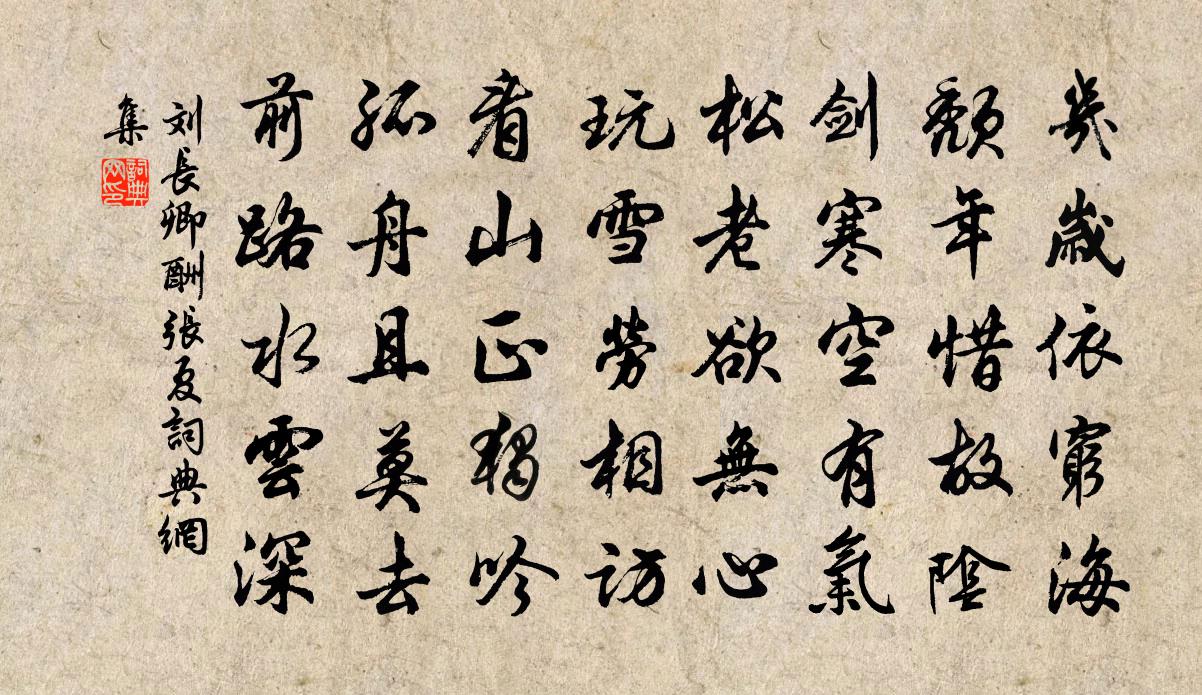 幾歲依窮海
頽年惜故陰
劍寒空有氣
松老欲無心
玩雪勞相訪
看山正獨吟
孤舟且莫去
前路水雲深
刘長卿酬張夏詞典網
集
詞典
网印